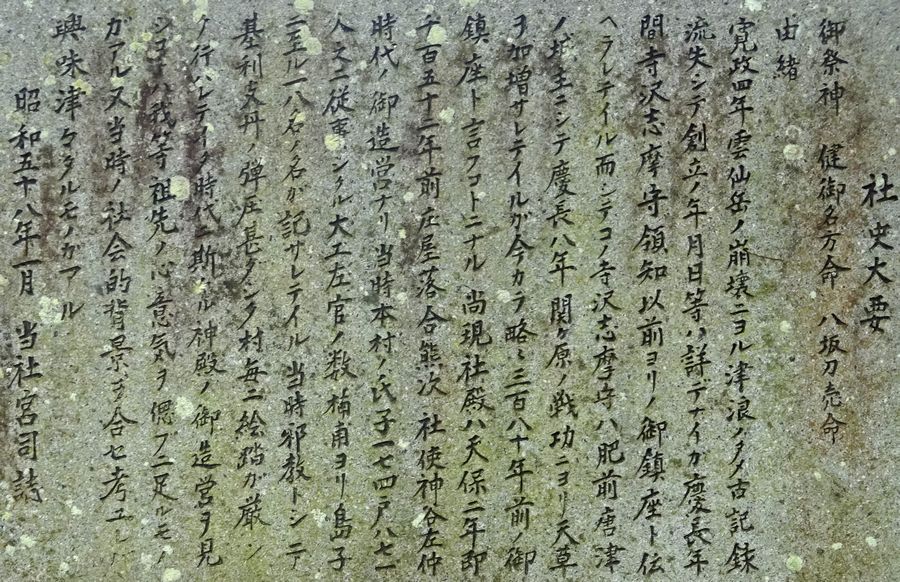 社史大要
御祭神 健御名方命 八坂刀売命
由緒
寛政四年雲仙岳ノ崩壊ニヨル津浪ノタメ古記録
流失シテ創立ノ年月日等ハ詳デナイガ慶長年
間寺沢志摩守領知以前ヨリノ御鎮座ト伝
ヘラレテイル而シテコノ寺沢志摩守ハ肥前唐津
ノ城主ニシテ慶長八年関ヶ原ノ戦功ニヨリ天草
ヲ加増サレテイルガ今カラ略々三百八十年前ノ御
鎮座ト言フコトニナル 尚現社殿ハ天保二年即
チ百五十二年前庄屋落合熊次 社使神谷左仲
時代ノ御造営ナリ当時本村ノ氏子一七四戸八七一
人之ニ従事シタル大工左官ノ数楠甫ヨリ島子
ニ至ル一八名ノ名ガ記サレテイル 当時邪教トシテ
基利支丹ノ弾圧甚ダシク村毎ニ絵踏ガ厳シ
ク行ハレテイタ時代ニ斯カル神殿ノ御造営ヲ見
シコトハ我等祖先ノ心意気ヲ偲ブニ足ルモノ
ガアル又当時ノ社会的背景ヲ合セ考ユレバ
興味津々タルモノガアル
昭和五十八年一月 当社宮司誌